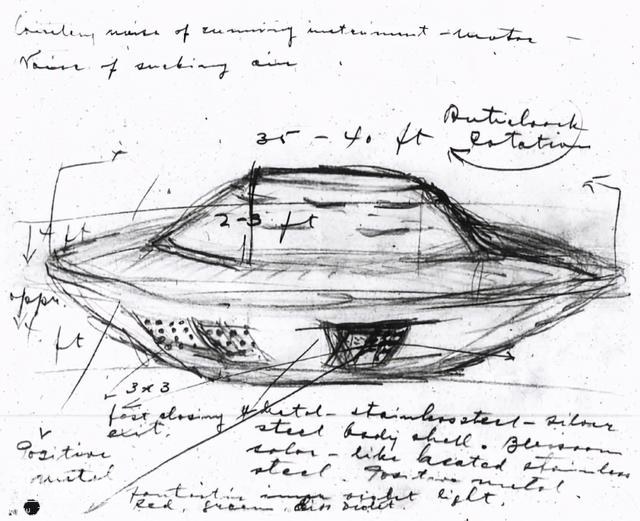 noise of running instrument - motor -
Noise of sucking air
Anticlock
rotation
35 - 40 ft
2-3 ft
ft
appr.
ft
3 x 3
fast closing
exit.
metal - stainless steel - silver
steel body shell.
color - like heated stainless
steel. Positive metal.
Positive
fantastic inner violet light.
Red, green, violet.